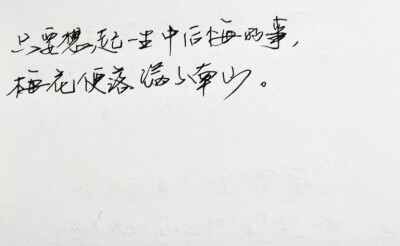 只要想起一生中后悔的事，
梅花便落满了南山。